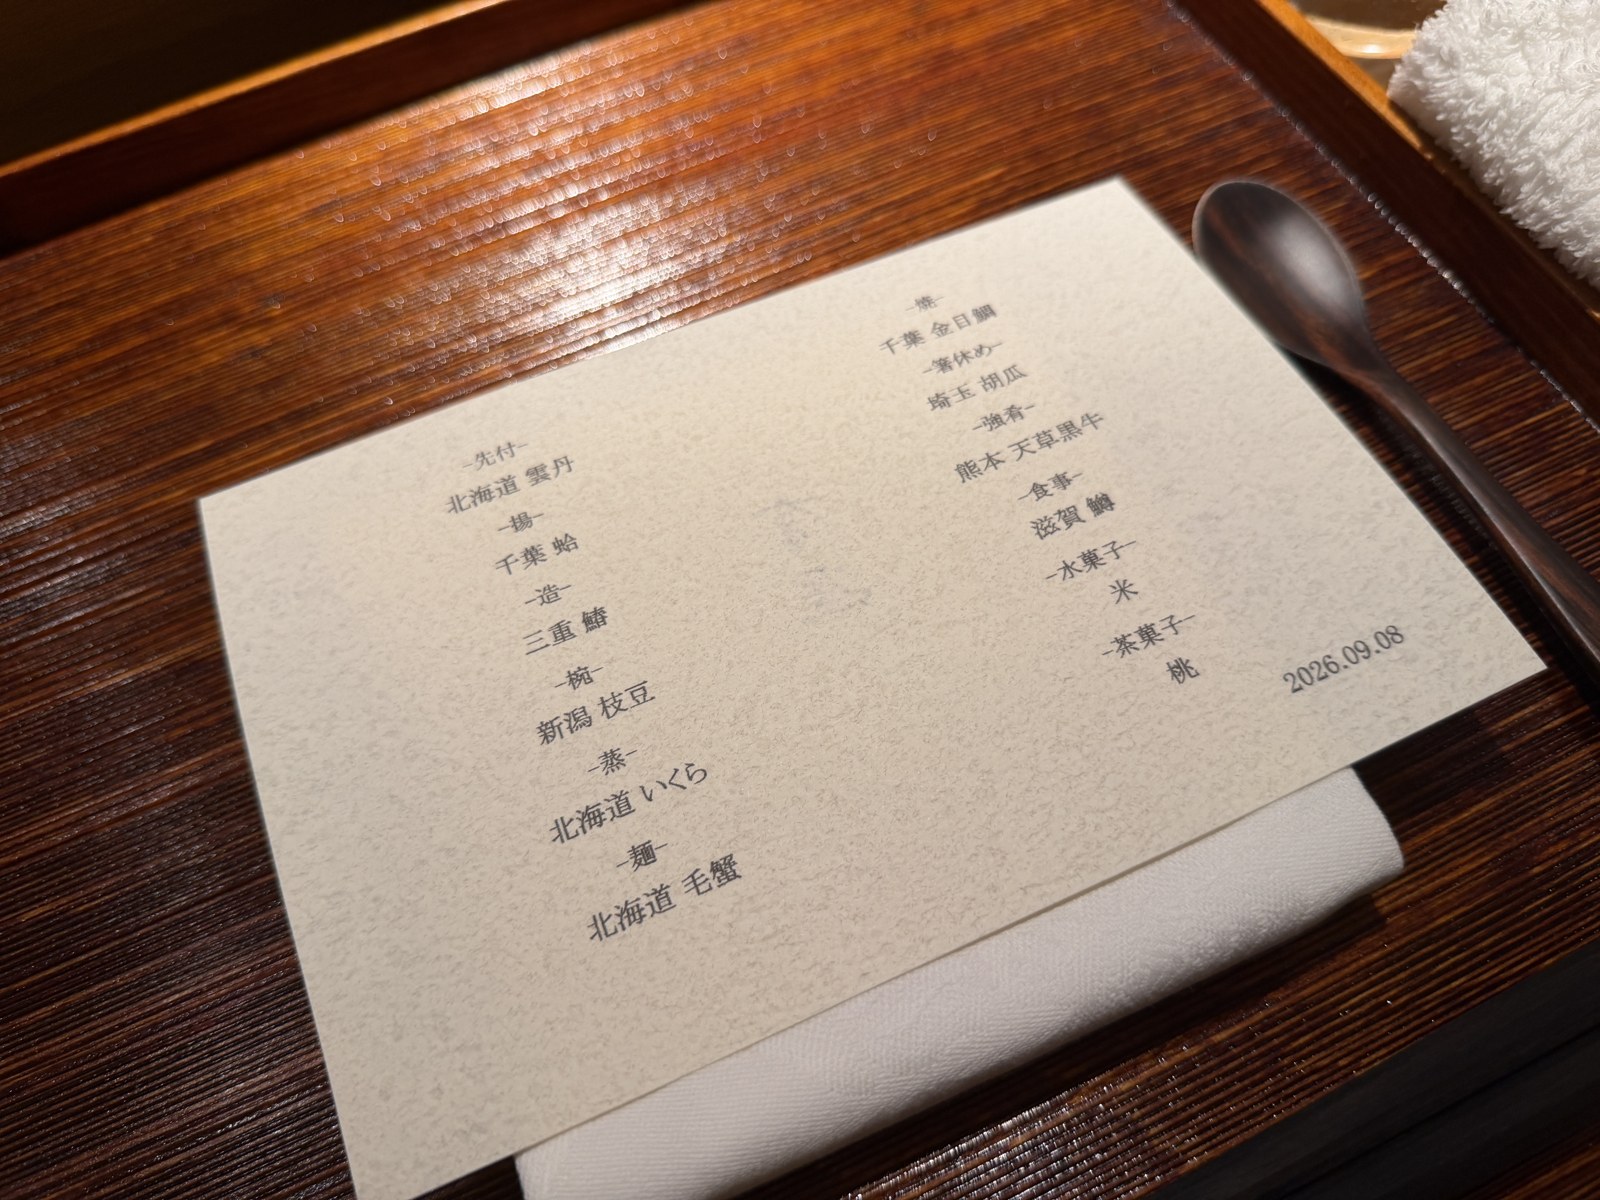 -先付-
北海道 雲丹
-揚-
千葉 蛤
-造-
三重 鰆
-椀-
新潟 枝豆
-蒸-
北海道 いくら
-麺-
北海道 毛蟹
-焼-
千葉 金目鯛
-箸休め-
埼玉 胡瓜
-強肴-
熊本 天草黒牛
-食事-
滋賀 鱒
-水菓子-
米
-茶菓子-
桃
2026.09.08